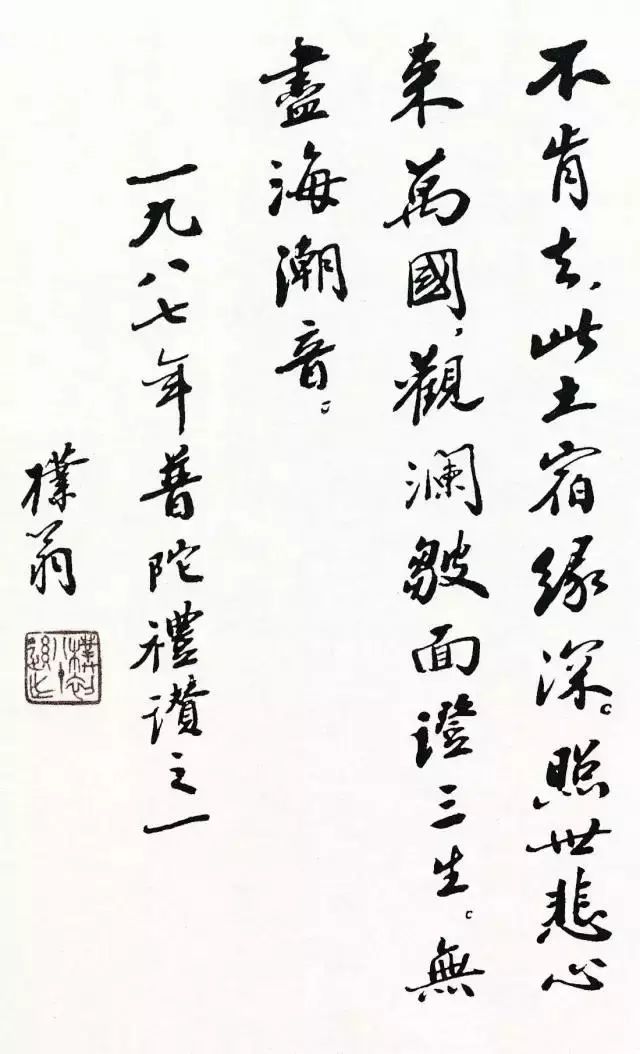 不肯去,此土宿缘深。照世悲心
来萬國,觀瀾皺面證三生。無
盡海潮音。
一九八七年普陀禮讚之一
樸翁